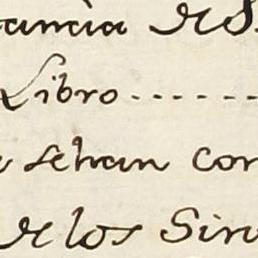 ancia de S
Libro ------
se han Cor
de los Sin